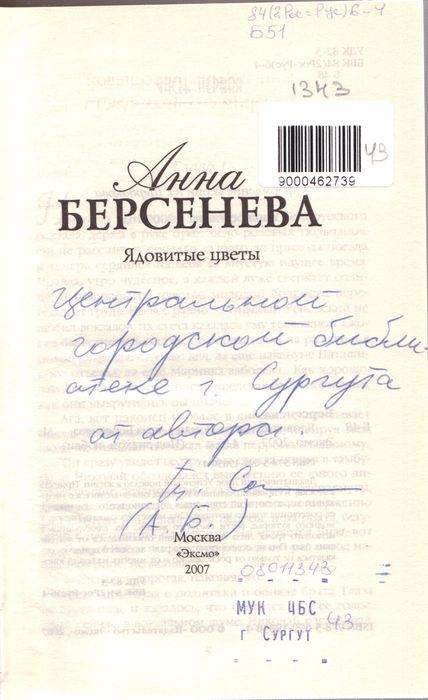 84(2Рос=Рус)6-4
Б51
1343
ЧЗ
9000462739
Анна
БЕРСЕНЕВА
Ядовитые цветы
Центральной
городской библи-
отеке г. Сургута
от автора.
(А. Б.)
Москва
«Эксмо»
2007
08011343
МУК ЦБС
ЧЗ
г СУРГУТ